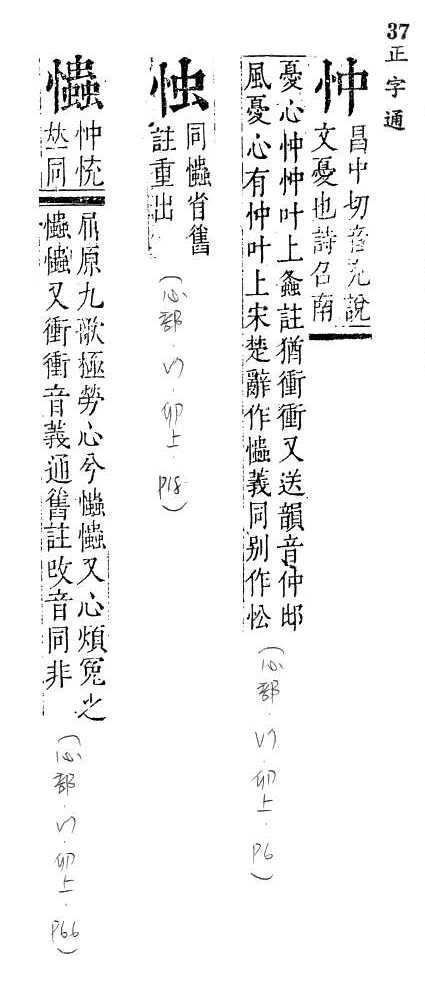 37
正字通
忡
昌中切音充說
文憂也詩召南
憂心忡忡叶上螽註猶衝衝又送韻音仲邶
風憂心有忡叶上宋楚辭作𢥞義同別作忪
(心部.卯上.P6)
㤝
同𢥞省舊
註重出
(心部.卯上.P18)
𢥞
忡㤝
𠀤同
屈原九歌極勞心兮𢥞𢥞又心煩冤之
𢥞𢥞又衝衝音義通舊註改音同非
(心部.卯上.P66)